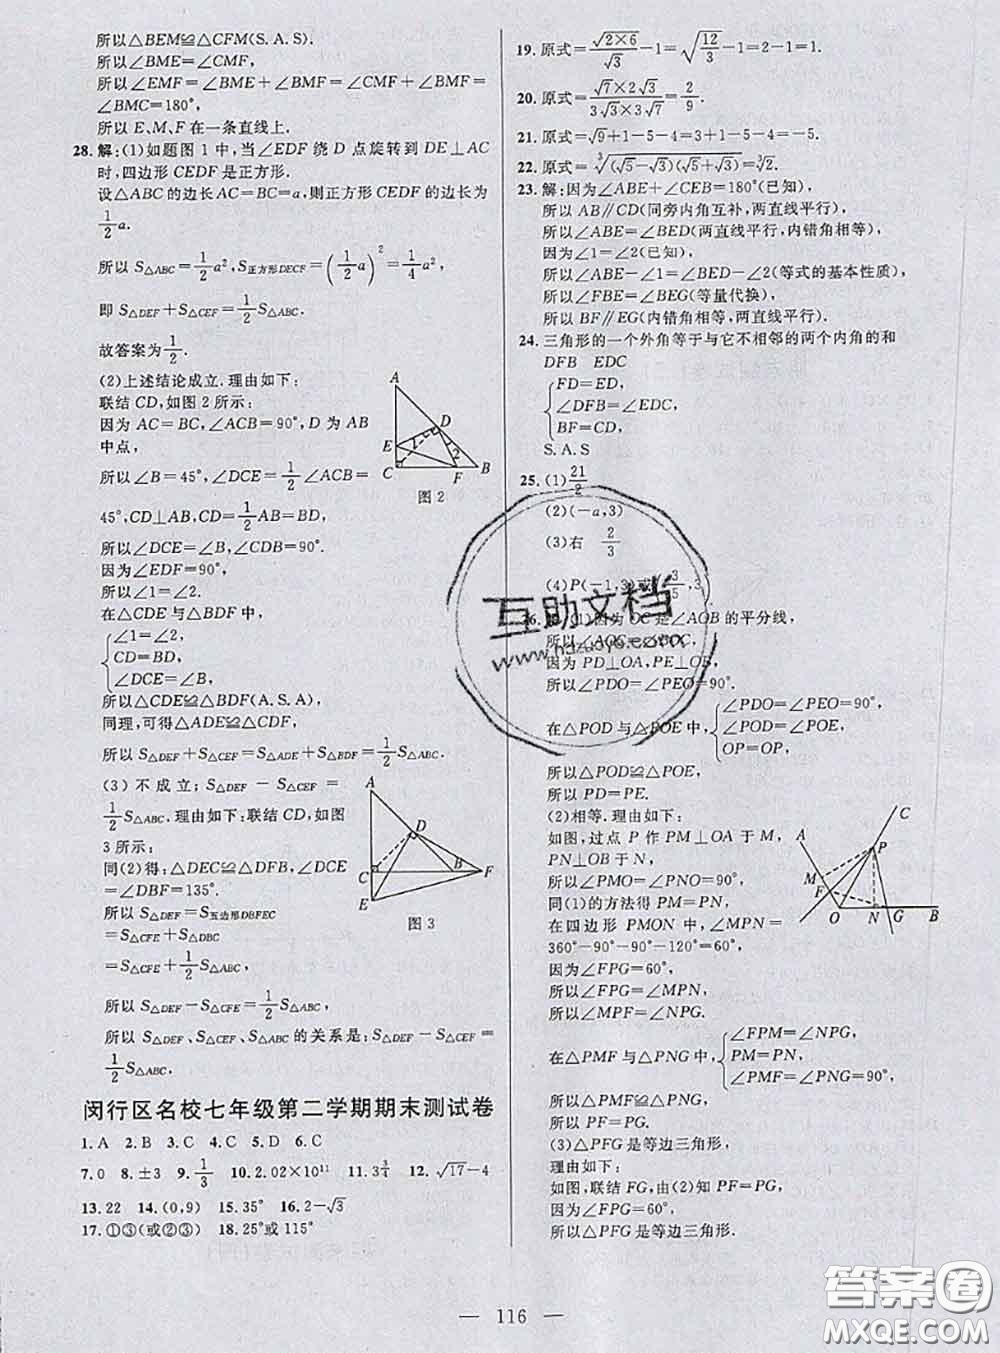 所以△BEM≌△CFM(S.A.S).
所以∠BME=∠CMF,
所以∠EMF=∠BME+∠BMF=∠CMF+∠BMF=
∠BMC=180°,
所以 E、M、F 在一条直线上.
28.解:(1)如题图 1 中,当∠EDF 绕 D 点旋转到 DE⊥AC
时,四边形 CEDF 是正方形.
设△ABC 的边长 AC=BC=a,则正方形 CEDF 的边长为
1/2 a.
所以 S△ABC=1/2 a²,S正方形DECF=(1/2 a)²=1/4 a²,
即 S△DEF+S△CEF=1/2 S△ABC.
故答案为 1/2.
(2)上述结论成立.理由如下:
联结 CD,如图 2 所示:
因为 AC=BC,∠ACB=90°,D 为 AB
中点,
所以∠B=45°,∠DCE=1/2∠ACB=
45°,CD⊥AB,CD=1/2 AB=BD,
所以∠DCE=∠B,∠CDB=90°.
因为∠EDF=90°,
所以∠1=∠2.
在△CDE 与△BDF 中,
∠1=∠2,
CD=BD,
∠DCE=∠B,
所以△CDE≌△BDF(A.S.A).
同理,可得△ADE≌△CDF,
所以 S△DEF+S△CEF=S△ADE+S△BDF=1/2 S△ABC.
A
D
E
1
2
C
F
B
图 2
(3)不成立;S△DEF−S△CEF=
1/2 S△ABC.理由如下:联结 CD,如图
3 所示:
同(2)得:△DEC≌△DFB,∠DCE
=∠DBF=135°.
所以 S△DEF=S五边形DBFEC
=S△CFE+S△DBC
=S△CFE+1/2 S△ABC,
所以 S△DEF−S△CFE=1/2 S△ABC,
所以 S△DEF、S△CEF、S△ABC 的关系是:S△DEF−S△CEF=
1/2 S△ABC.
A
D
C
B
F
E
图 3
闵行区名校七年级第二学期期末测试卷
1.A 2.B 3.C 4.C 5.D 6.C
7.0 8.±3 9.1/3 10.2.02×10¹¹ 11.3^(3/4) 12.√17−4
13.22 14.(0,9) 15.35° 16.2−√3
17.①③(或②③) 18.25°或 115°
19.原式=√(2×6)/√3−1=√(12/3)−1=2−1=1.
20.原式=(√7×2√3)/(3√3×3√7)=2/9.
21.原式=√9+1−5−4=3+1−5−4=−5.
22.原式=∛((√5−√3)(√5+√3))=∛2.
23.解:因为∠ABE+∠CEB=180°(已知),
所以 AB∥CD(同旁内角互补,两直线平行),
所以∠ABE=∠BED(两直线平行,内错角相等),
因为∠1=∠2(已知),
所以∠ABE−∠1=∠BED−∠2(等式的基本性质),
所以∠FBE=∠BEG(等量代换),
所以 BF∥EG(内错角相等,两直线平行).
24.三角形的一个外角等于与它不相邻的两个内角的和
DFB EDC
FD=ED,
∠DFB=∠EDC,
BF=CD,
S.A.S
25.(1)21/2
(2)(−a,3)
(3)右 2/3
(4)P(−1,3)或
(1)因为 OC 是∠AOB 的平分线,
所以∠AOC=∠BOC,
因为 PD⊥OA,PE⊥OB,
所以∠PDO=∠PEO=90°.
在△POD 与△POE 中,
∠PDO=∠PEO=90°,
∠POD=∠POE,
OP=OP,
所以△POD≌△POE,
所以 PD=PE.
(2)相等.理由如下:
如图,过点 P 作 PM⊥OA 于 M,
PN⊥OB 于 N,
所以∠PMO=∠PNO=90°,
同(1)的方法得 PM=PN,
在四边形 PMON 中,∠MPN=
360°−90°−90°−120°=60°,
因为∠FPG=60°,
所以∠FPG=∠MPN,
所以∠MPF=∠NPG.
在△PMF 与△PNG 中,
∠FPM=∠NPG,
PM=PN,
∠PMF=∠PNG=90°,
所以△PMF≌△PNG,
所以 PF=PG.
(3)△PFG 是等边三角形,
理由如下:
如图,联结 FG,由(2)知 PF=PG,
因为∠FPG=60°,
所以△PFG 是等边三角形.
A
C
P
M
F
O
N
G
B
互助文档
116
答案圈
MXQE.COM